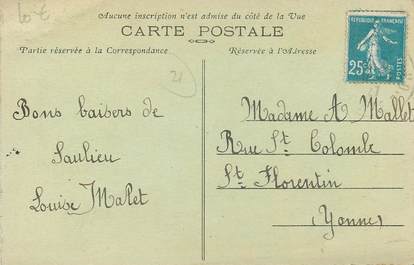 Aucune inscription n'est admise du côté de la Vue
CARTE POSTALE
Partie réservée à la Correspondance
Réservée à l'Adresse
REPUBLIQUE FRANÇAISE
25c
POSTES
21
Bons baisers de
Saulieu
Louise Malet
Madame A Mallet
Rue St. Colombe
St. Florentin
(Yonne)